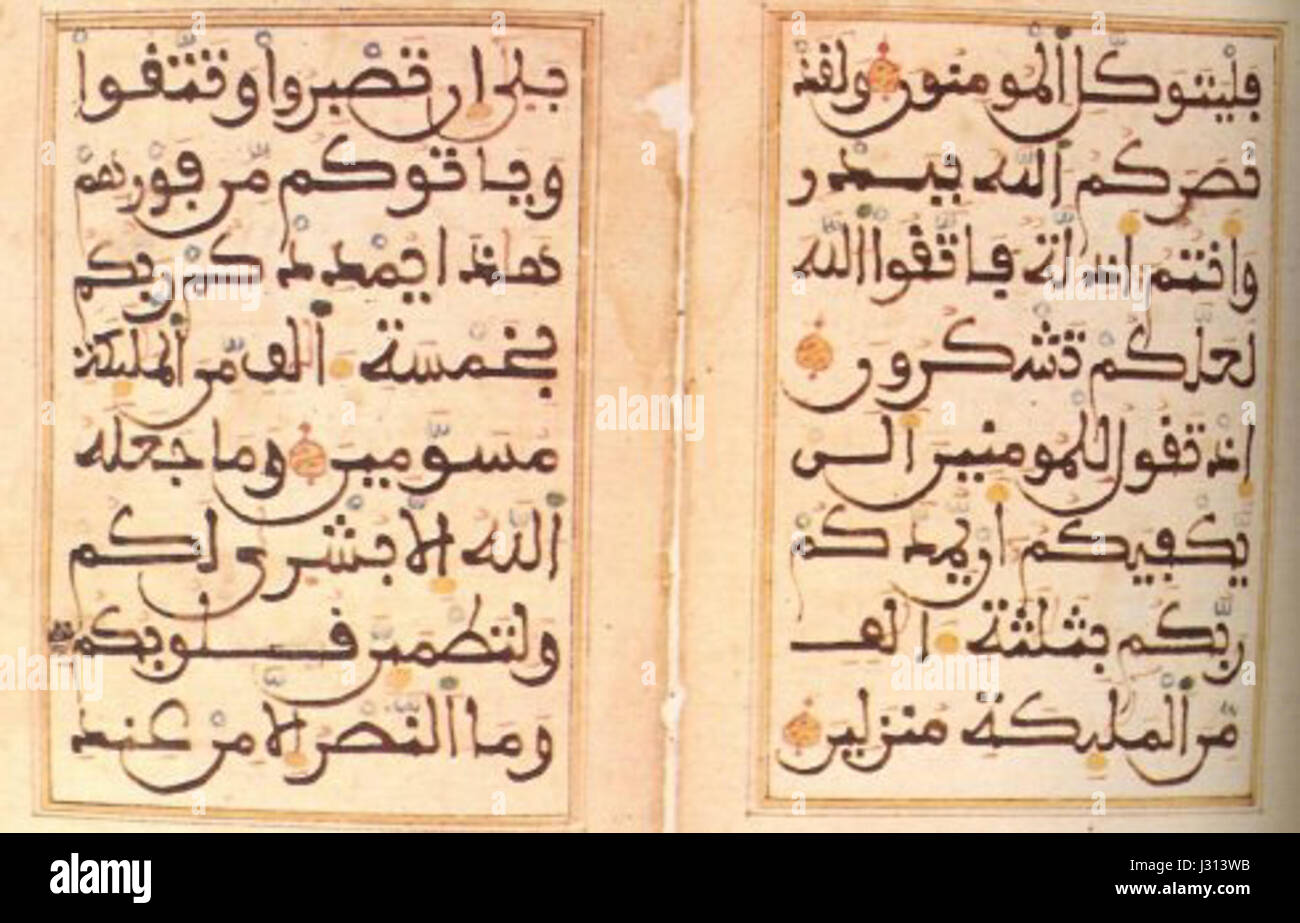 فليتوكل المومنون ولقد
نصركم الله ببدر
وانتم اذلة فاتقوا الله
لعلكم تشكرون
اذ تقول للمومنين الن
يكفيكم ان يمدكم
ربكم بثلثة الف
من المليكة منزلين
بلى ان تصبروا وتتقوا
وياتوكم من فورهم
هذا يمددكم ربكم
بخمسة الف من المليكة
مسومين وما جعله
الله الا بشرى لكم
ولتطمين قلوبكم
وما النصر الا من عند
alamy
alamy
Image ID: J313WB
www.alamy.com